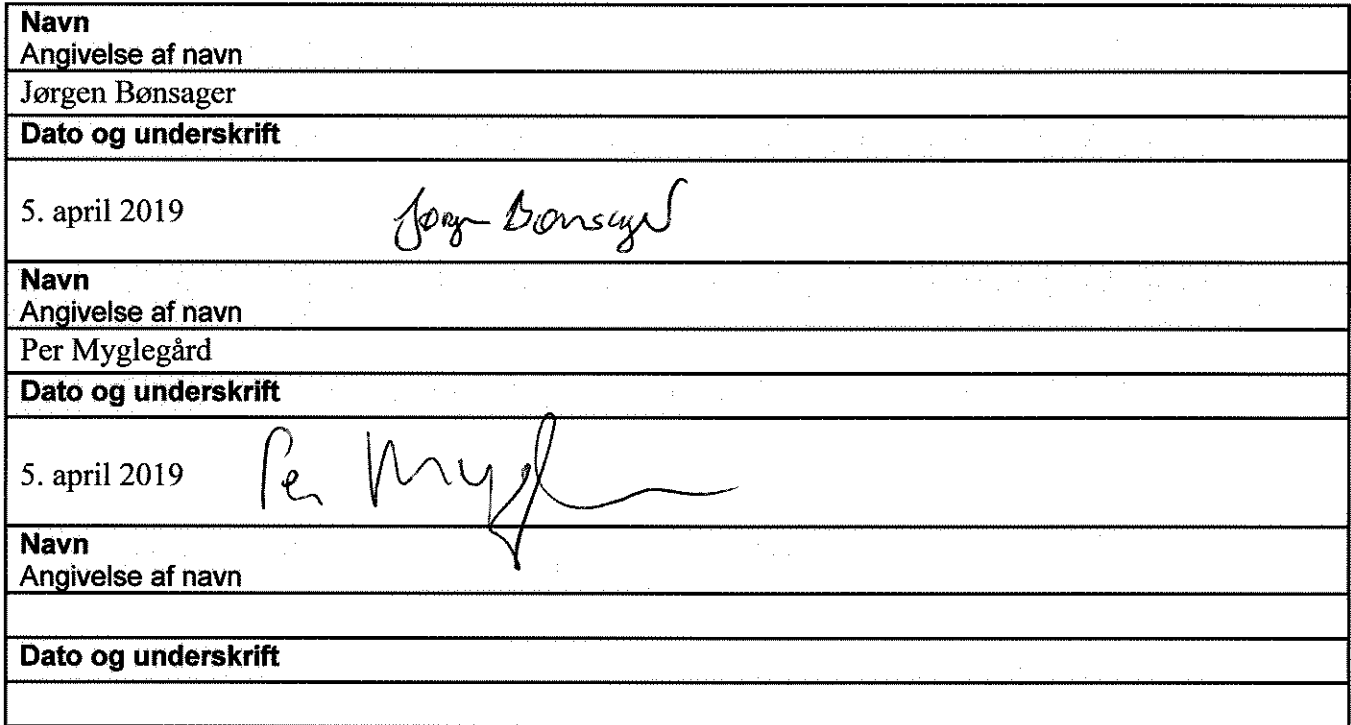 Navn
Angivelse af navn
Jørgen Bønsager
Dato og underskrift
5. april 2019 Jørgen Bønsager
Navn
Angivelse af navn
Per Myglegård
Dato og underskrift
5. april 2019 Per
Navn
Angivelse af navn
Dato og underskrift